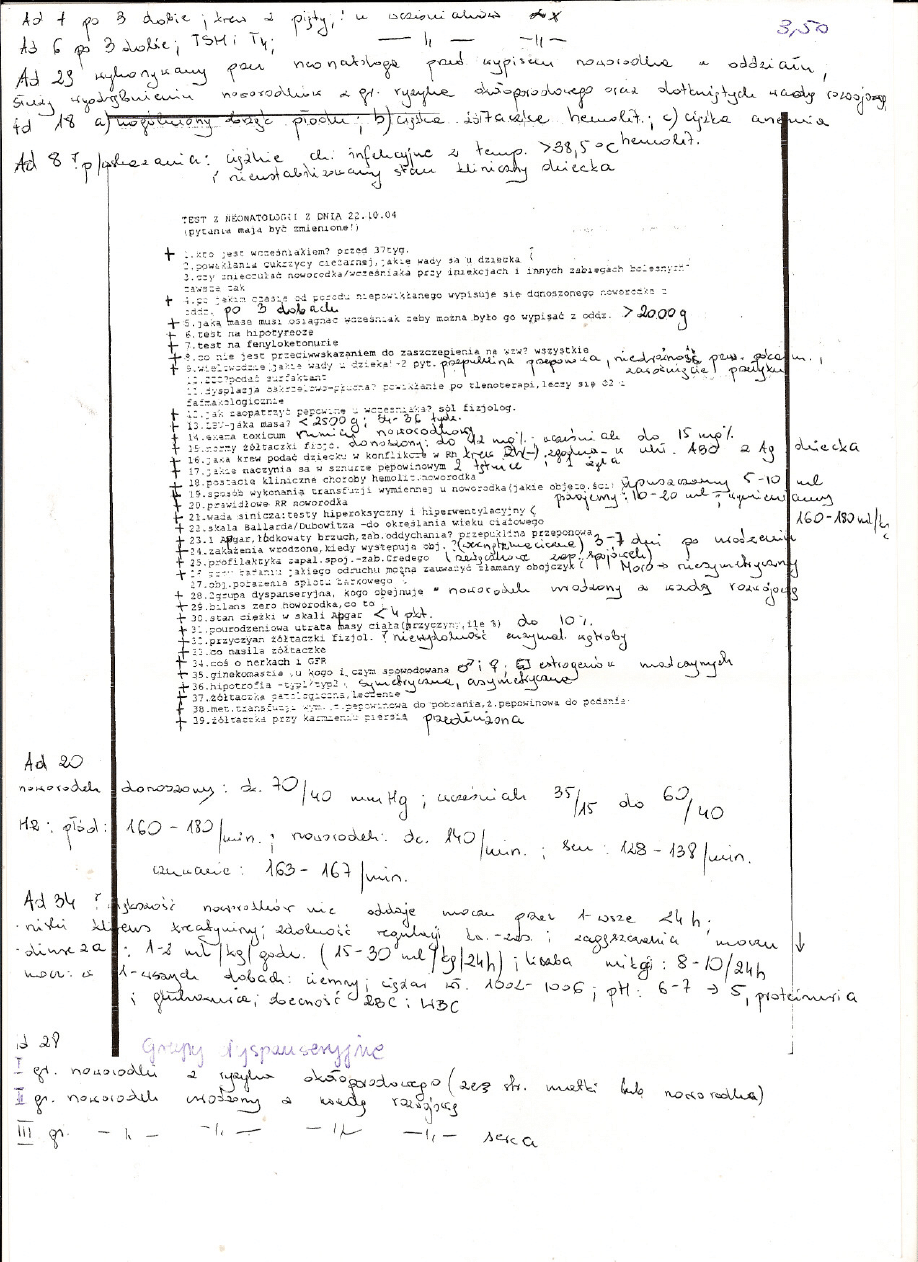 Ad 7 po 3 dobie; krew z pięty, u wcześniaków
3,50
Ad 6 po 3 dobie; TSH i T4; — 11 — — 11 —
Ad 23 wykonywany przez neonatologa przed wypisem noworodka z oddziału,
służy wyodrębnieniu noworodków z gr. ryzyka okołoporodowego oraz dotkniętych wadą rozwojową
Ad 18 a) uogólniony obrzęk płodu; b) ciężka żółtaczka hemolit.; c) ciężka anemia hemolit.
Ad 8 ? p/wskazania: ciężkie ch. infekcyjne z temp. >38,5°C
i nieustabilizowany stan kliniczny dziecka
TEST Z NEONATOLOGII Z DNIA 22.10.04
(pytania mają być zmienione!)
+ 1.kto jest wcześniakiem? przed 37tyg.
2.powikłania cukrzycy ciężarnej,jakie wady są u dziecka
3.czy znieczulać noworodka/wcześniaka przy iniekcjach i innych zabiegach bolesnych-
zawsze tak
+ 4.po jakim czasie od porodu niepowikłanego wypisuje się donoszonego noworodka z
oddz. po 3 dobach
+ 5.jaką masę musi osiągnąć wcześniak żeby można było go wypisać z oddz. > 2000g
+ 6.test na hipotyreozę
+ 7.test na fenyloketonurię
+ 8.co nie jest przeciwwskazaniem do zaszczepienia na wzw? wszystkie
+ 9.wielowodzie,jakie wady u dziecka?-2 pyt. przepuklina przeponowa, niedrożność przew. pokarm.,
zarośnięcie przełyku
10.ZZO?podać surfaktant
11.dysplazja oskrzelowo-płucna? powikłanie po tlenoterapi,leczy się
farmakologicznie
+ 12.jak zaopatrzyć pępowinę u wcześniaka? sól fizjolog.
+ 13.LBW-jaka masa? < 2500 g; 34-36 tydz.
+ 14.exema toxicum rumień noworodkowy
+ 15.normy żółtaczki fizjo. donoszony: do 12 mg% - wcześniak do 15 mg%
+ 16.jaką krew podać dziecku w konflikcie w RH krew Rh(-), zgodna w ukł. ABO z Ag dziecka
+ 17.jakie naczynia są w sznurze pępowinowym 2 tętnice, 1 żyła
+ 18.postacie kliniczne choroby hemolit.noworodka
+ 19.sposób wykonania transfuzji wymiennej u noworodka(jakie objęto.ści) upuszczamy 5-10 ml
porcjami: 10-20 ml - wymieniamy
160-180 ml/kg
+ 20.prawidłowe RR noworodka
+ 21.wada sinicza:testy hiperoksyczny i hiperwentylacyjny
+ 22.skala Ballarda/Dubowitza -do określania wieku ciążowego
+ 23.1 Apgar,łódkowaty brzuch,zab.oddychania? przepuklina przeponowa
+ 24.zakażenia wrodzone,kiedy występują obj.? (wewnątrzmaciczne) 3-7 dni po urodzeniu
+ 25.profilaktyka zapal.spoj.-zab.Credego (rzeżączkowe zap. spojówek)
+ 26.przy badaniu jakiego odruchu można zauważyć złamany obojczyk? Moro → niesymetryczny
27.obj.porażenia splotu barkowego
+ 28.2grupa dyspanseryjna, kogo obejmuje - noworodek urodzony z wadą rozwojową
+ 29.bilans zero noworodka,co to
+ 30.stan ciężki w skali Apgar < 4 pkt.
+ 31.pourodzeniowa utrata masy ciała(przyczyny,ile %) do 10%
+ 32.przyczyny żółtaczki fizjol. ? niewydolność enzymat. wątroby
+ 33.co nasila żółtaczkę
+ 34.coś o nerkach i GFR
+ 35.ginekomastia ,u kogo i czym spowodowana ♂ i ♀, estrogenów matczynych
+ 36.hipotrofia -typ1/typ2 symetryczna, asymetryczna
+ 37.żółtaczka patologiczna,leczenie
+ 38.met.transfuzji wym.-t.pępowinowa do pobrania,ż.pępowinowa do podania
+ 39.żółtaczka przy karmieniu piersią przedłużona
Ad 20
noworodek donoszony: ok. 70/40 mmHg; wcześniak 35/15 do 60/40
HR: płód: 160-180/min.; noworodek: ok. 140/min.; sen: 128-138/min.
czuwanie: 163-167/min.
Ad 34 ? większość noworodków nie oddaje moczu przez 1-wsze 24h;
- niski klirens kreatyniny; zdolność regulacji kw.-zas. i zagęszczania moczu
- diureza: 1-2 ml/kg/godz. (15-30 ml/kg/24h); liczba mikcji: 8-10/24h
mocz: w 1-wszych dobach: ciemny, ciężar wł. 1002-1006; pH: 6-7 → 5, proteinuria
i glukozuria; obecność RBC i WBC
Ad 28 Grupy dyspanseryjne
I gr. noworodki z ryzyka okołoporodowego (ze str. matki lub noworodka)
II gr. noworodek urodzony z wadą rozwojową
III gr. — 11 — — 11 — — 11 — — 11 — serca